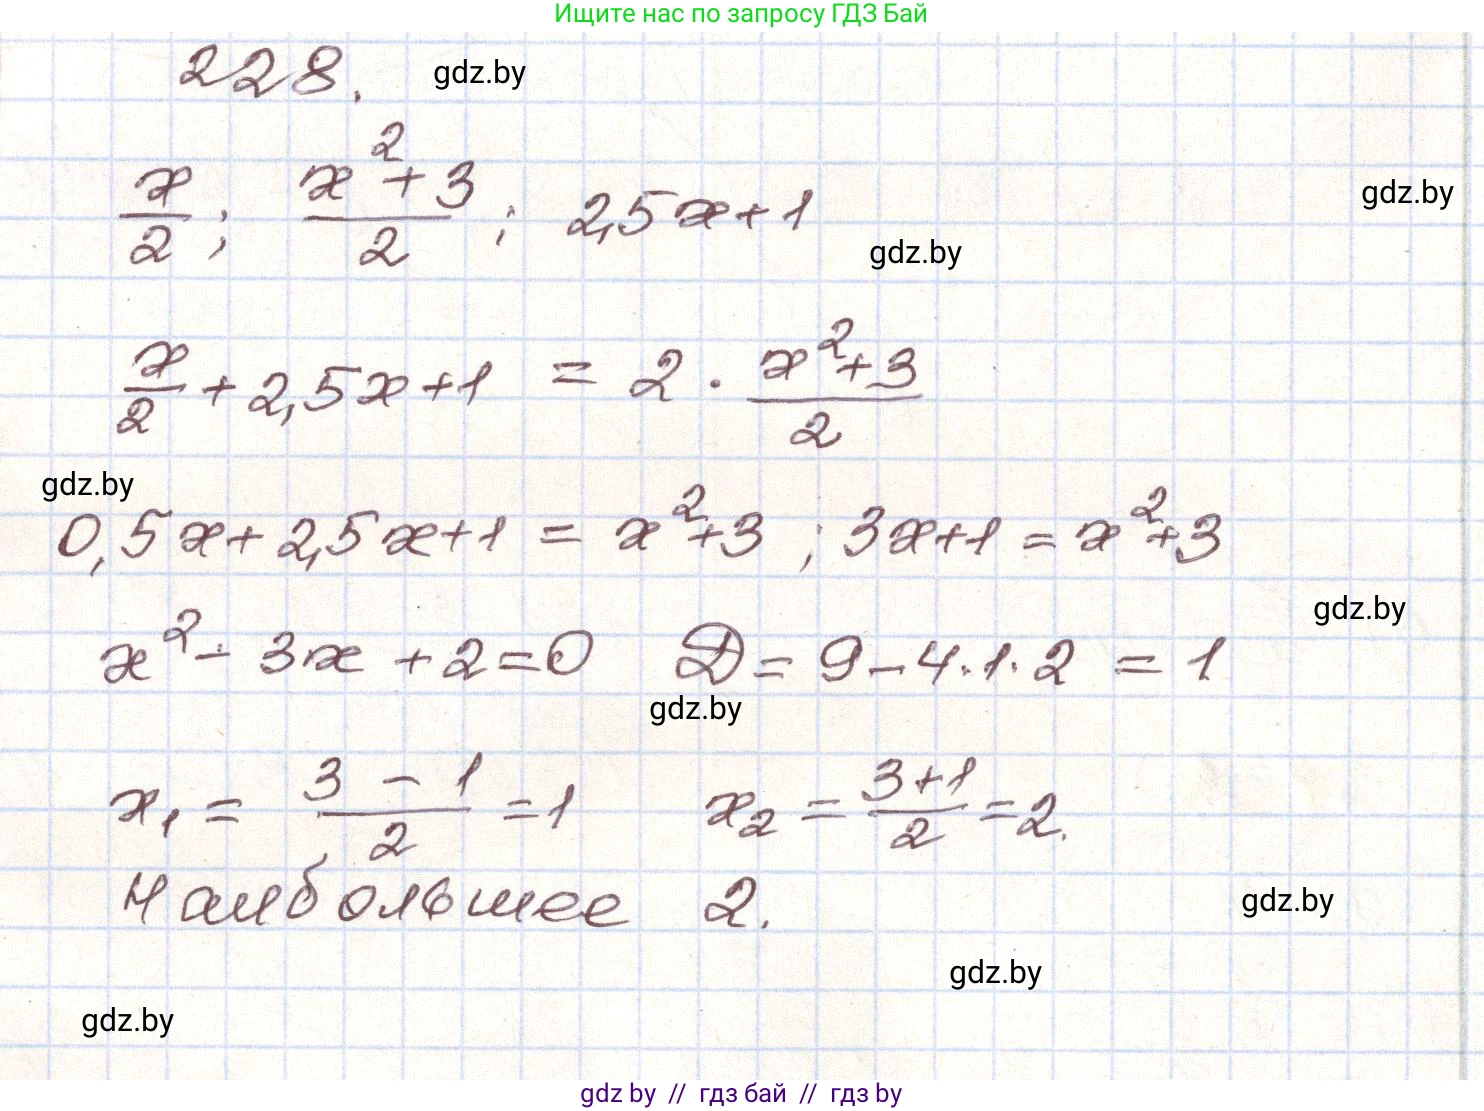 Ищите нас по запросу ГДЗ Бай
228. gdz.by
x/2; (x²+3)/2; 2,5x+1 gdz.by
gdz.by
x/2 + 2,5x+1 = 2 · (x²+3)/2
gdz.by
0,5x+2,5x+1 = x²+3; 3x+1 = x²+3
gdz.by
x² - 3x + 2 = 0 D = 9 - 4·1·2 = 1
gdz.by
x₁ = (3 - 1)/2 = 1 x₂ = (3+1)/2 = 2.
Наибольшее 2. gdz.by
gdz.by
gdz.by
gdz by // гдз бай // гдз by